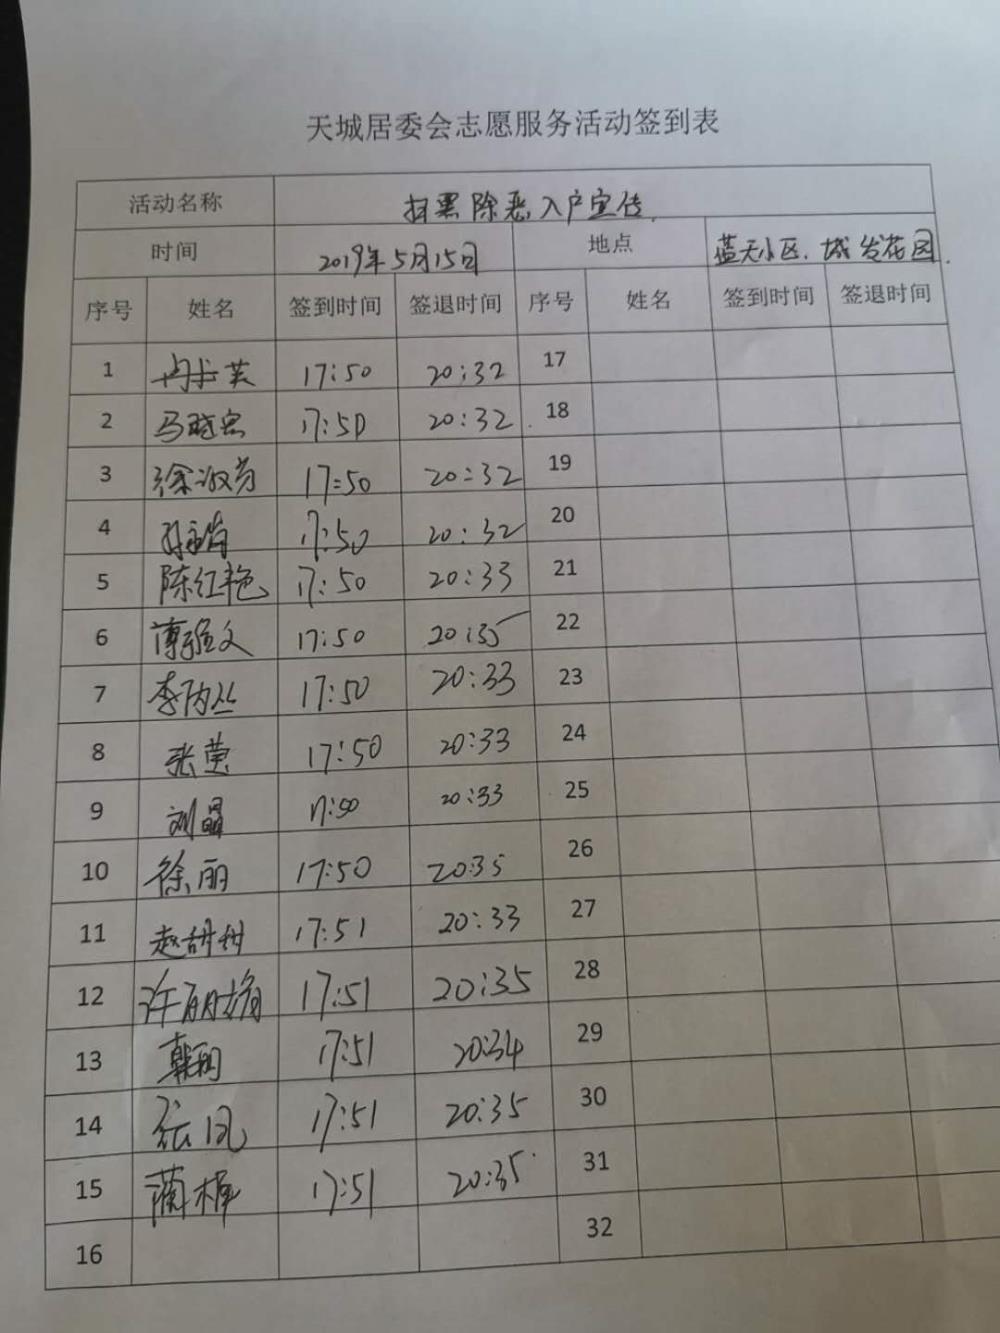 天城居委会志愿服务活动签到表
活动名称 扫黑除恶入户宣传.
时间 2019年5月15日 地点 蓝天小区.城发花园.
序号 姓名 签到时间 签退时间 序号 姓名 签到时间 签退时间
1 17:50 20:32 17
2 马晓宏 17:50 20:32 18
3 徐淑芳 17:50 20:32 19
4 17:50 20:32 20
5 陈红艳 17:50 20:33 21
6 17:50 20:35 22
7 李丙丛 17:50 20:33 23
8 张莹 17:50 20:33 24
9 刘晶 17:50 20:33 25
10 徐丽 17:50 20:35 26
11 赵甜甜 17:51 20:33 27
12 许丽娟 17:51 20:35 28
13 17:51 20:34 29
14 张凤 17:51 20:35 30
15 17:51 20:35 31
16 32